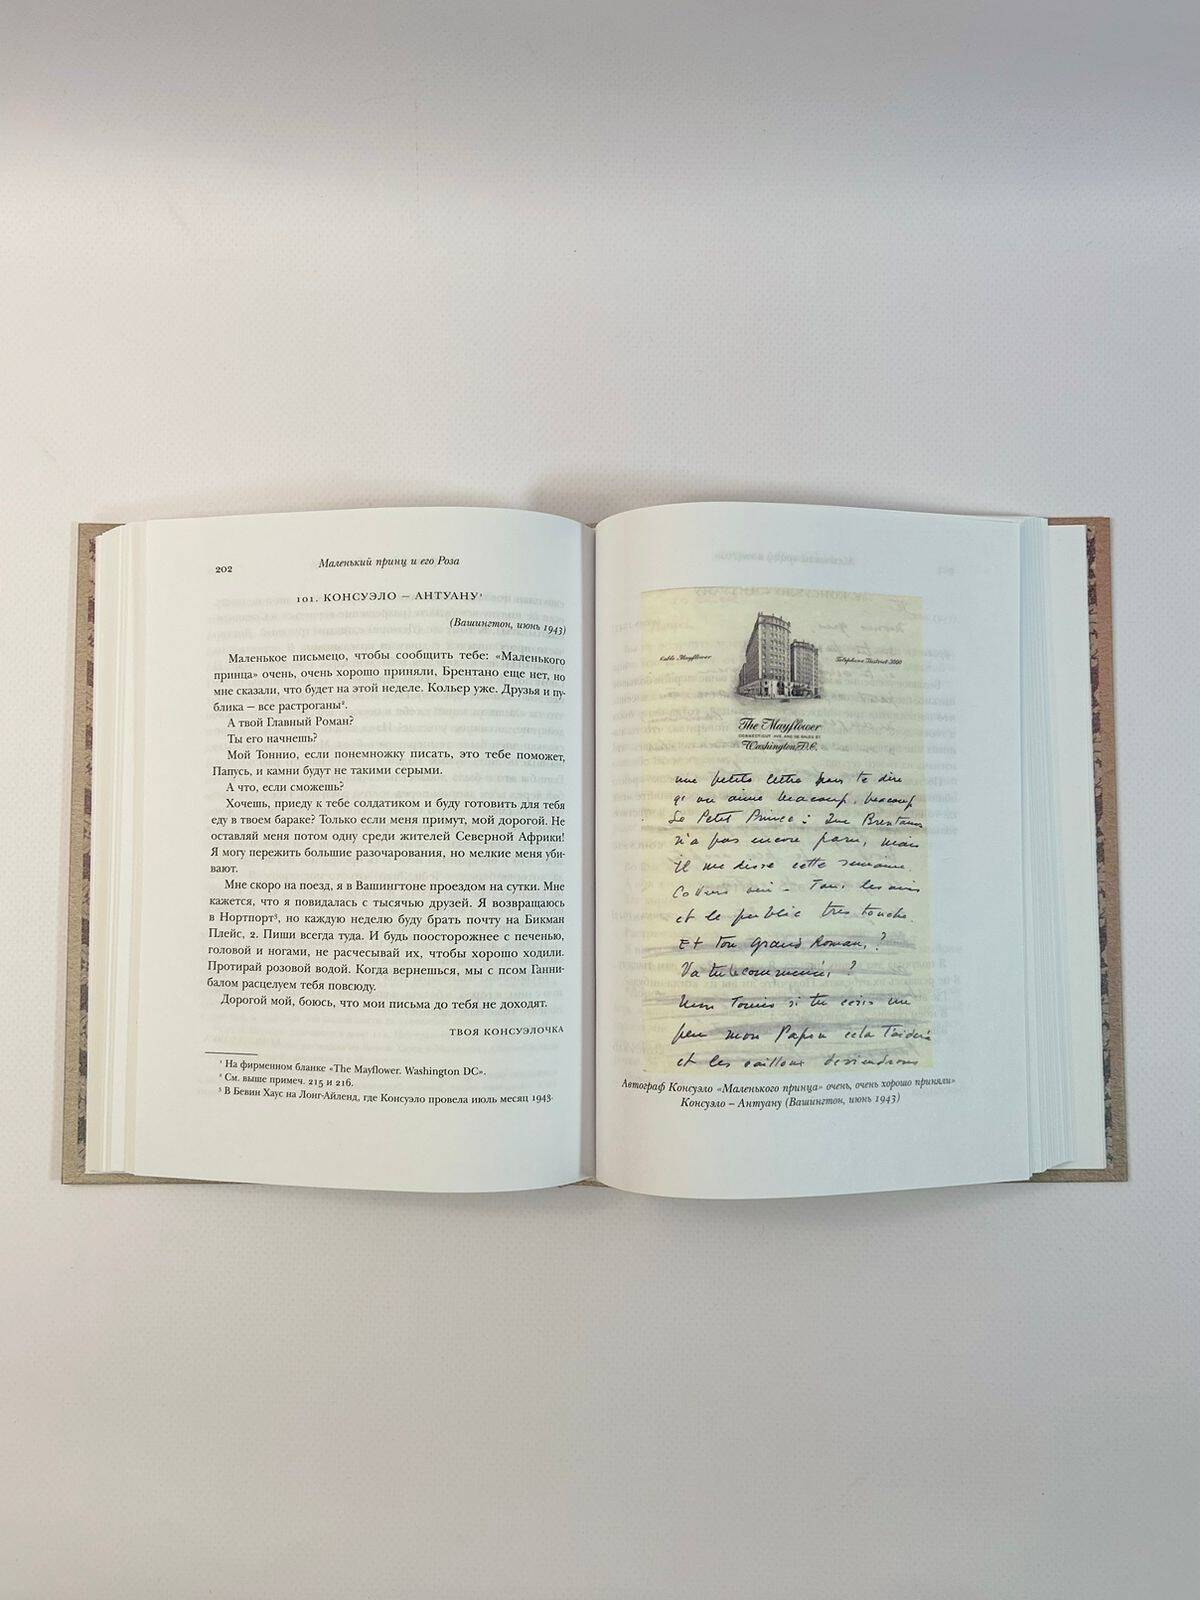 202
Маленький принц и его Роза
101. КОНСУЭЛО – АНТУАНУ¹
(Вашингтон, июнь 1943)
Маленькое письмецо, чтобы сообщить тебе: «Маленького
принца» очень, очень хорошо приняли, Брентано еще нет, но
мне сказали, что будет на этой неделе. Кольер уже. Друзья и пу-
блика – все растроганы².
А твой Главный Роман?
Ты его начнешь?
Мой Тоннио, если понемножку писать, это тебе поможет,
Папусь, и камни будут не такими серыми.
А что, если сможешь?
Хочешь, приеду к тебе солдатиком и буду готовить для тебя
еду в твоем бараке? Только если меня примут, мой дорогой. Не
оставляй меня потом одну среди жителей Северной Африки!
Я могу пережить большие разочарования, но мелкие меня уби-
вают.
Мне скоро на поезд, я в Вашингтоне проездом на сутки. Мне
кажется, что я повидалась с тысячью друзей. Я возвращаюсь
в Нортпорт³, но каждую неделю буду брать почту на Бикман
Плейс, 2. Пиши всегда туда. И будь поосторожнее с печенью,
головой и ногами, не расчесывай их, чтобы хорошо ходили.
Протирай розовой водой. Когда вернешься, мы с псом Ганни-
балом расцелуем тебя повсюду.
Дорогой мой, боюсь, что мои письма до тебя не доходят.
ТВОЯ КОНСУЭЛОЧКА
¹ На фирменном бланке «The Mayflower. Washington DC».
² См. выше примеч. 215 и 216.
³ В Бевин Хаус на Лонг-Айленд, где Консуэло провела июль месяц 1943.
Cable Mayflower
Telephone District 3000
The Mayflower
CONNECTICUT AVE. AND DE SALES ST.
Washington, D.C.
une petite lettre pour te dire
qu on aime beaucoup, beaucoup
Le Petit Prince: Brentano
n'a pas encore paru, mais
il me disse cette semaine
oui - Tous les amis
et le public tres touche.
Et ton grand Roman, ?
Va tu le commencé, ?
Mon Tonio si tu ecris un
peu mon Papou cela t'aidera
et les cailloux deviendrons
Автограф Консуэло «Маленького принца» очень, очень хорошо приняли»
Консуэло – Антуану (Вашингтон, июнь 1943)